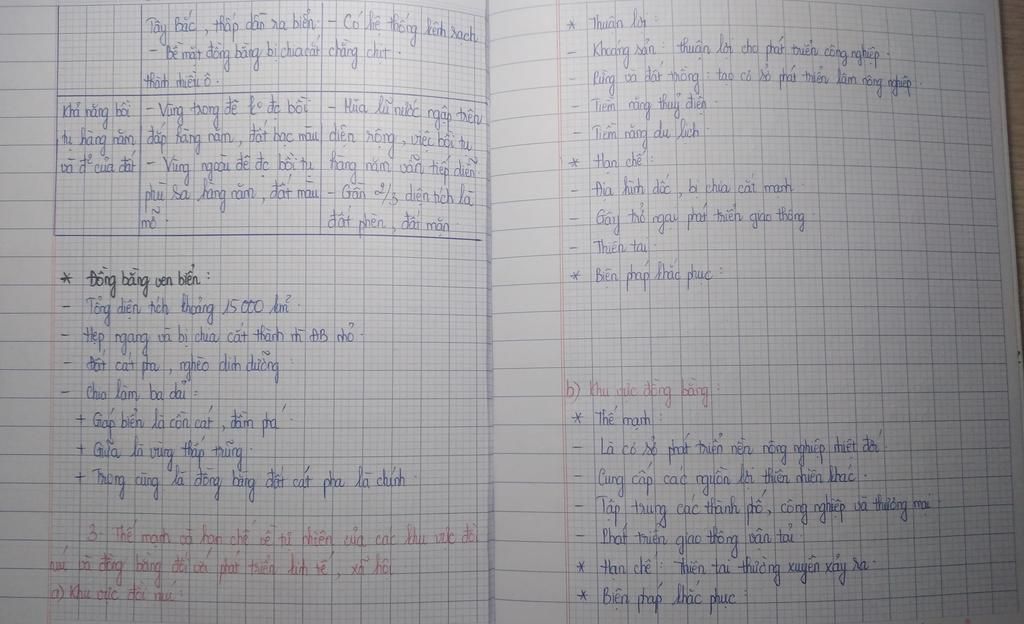 Tây Bắc, thấp dần ra biển. - Có hệ thống kênh rạch
- Bề mặt đồng bằng bị chia cắt chằng chịt.
thành nhiều ô.
Khả năng bồi - Vùng trong đê ko đc bồi - Mùa lũ nước ngập trên
tụ hàng năm đắp hàng năm, đất bạc màu diện rộng, việc bồi tụ
và đ² của đất - Vùng ngoài đê đc bồi tụ hàng năm vẫn tiếp diễn.
phù sa hàng năm, đất màu - Gần 2/3 diện tích là
mỡ. đất phèn, đất mặn
* Đồng bằng ven biển:
- Tổng diện tích khoảng 15000 km².
- Hẹp ngang và bị chia cắt thành n ĐB nhỏ.
- Đất cát pha, nghèo dinh dưỡng
- Chia làm ba dải:
+ Giáp biển là cồn cát, đầm phá.
+ Giữa là vùng thấp trũng.
+ Trong cùng là đồng bằng đất cát pha là chính.
3. Thế mạnh và hạn chế về tự nhiên của các khu vực đồi
núi và đồng bằng đối với phát triển kinh tế, xã hội
a) Khu vực đồi núi:
* Thuận lợi:
- Khoáng sản: thuận lợi cho phát triển công nghiệp.
- Rừng và đất trồng: tạo cơ sở phát triển lâm nông nghiệp.
- Tiềm năng thuỷ điện.
- Tiềm năng du lịch.
* Hạn chế:
- Địa hình dốc, bị chia cắt mạnh.
- Gây trở ngại phát triển giao thông.
- Thiên tai.
* Biện pháp khắc phục:
b) Khu vực đồng bằng:
* Thế mạnh:
- Là cơ sở phát triển nền nông nghiệp nhiệt đới.
- Cung cấp các nguồn lợi thiên nhiên khác.
- Tập trung các thành phố, công nghiệp và thương mại.
- Phát triển giao thông vận tải.
* Hạn chế: thiên tai thường xuyên xảy ra.
* Biện pháp khắc phục: